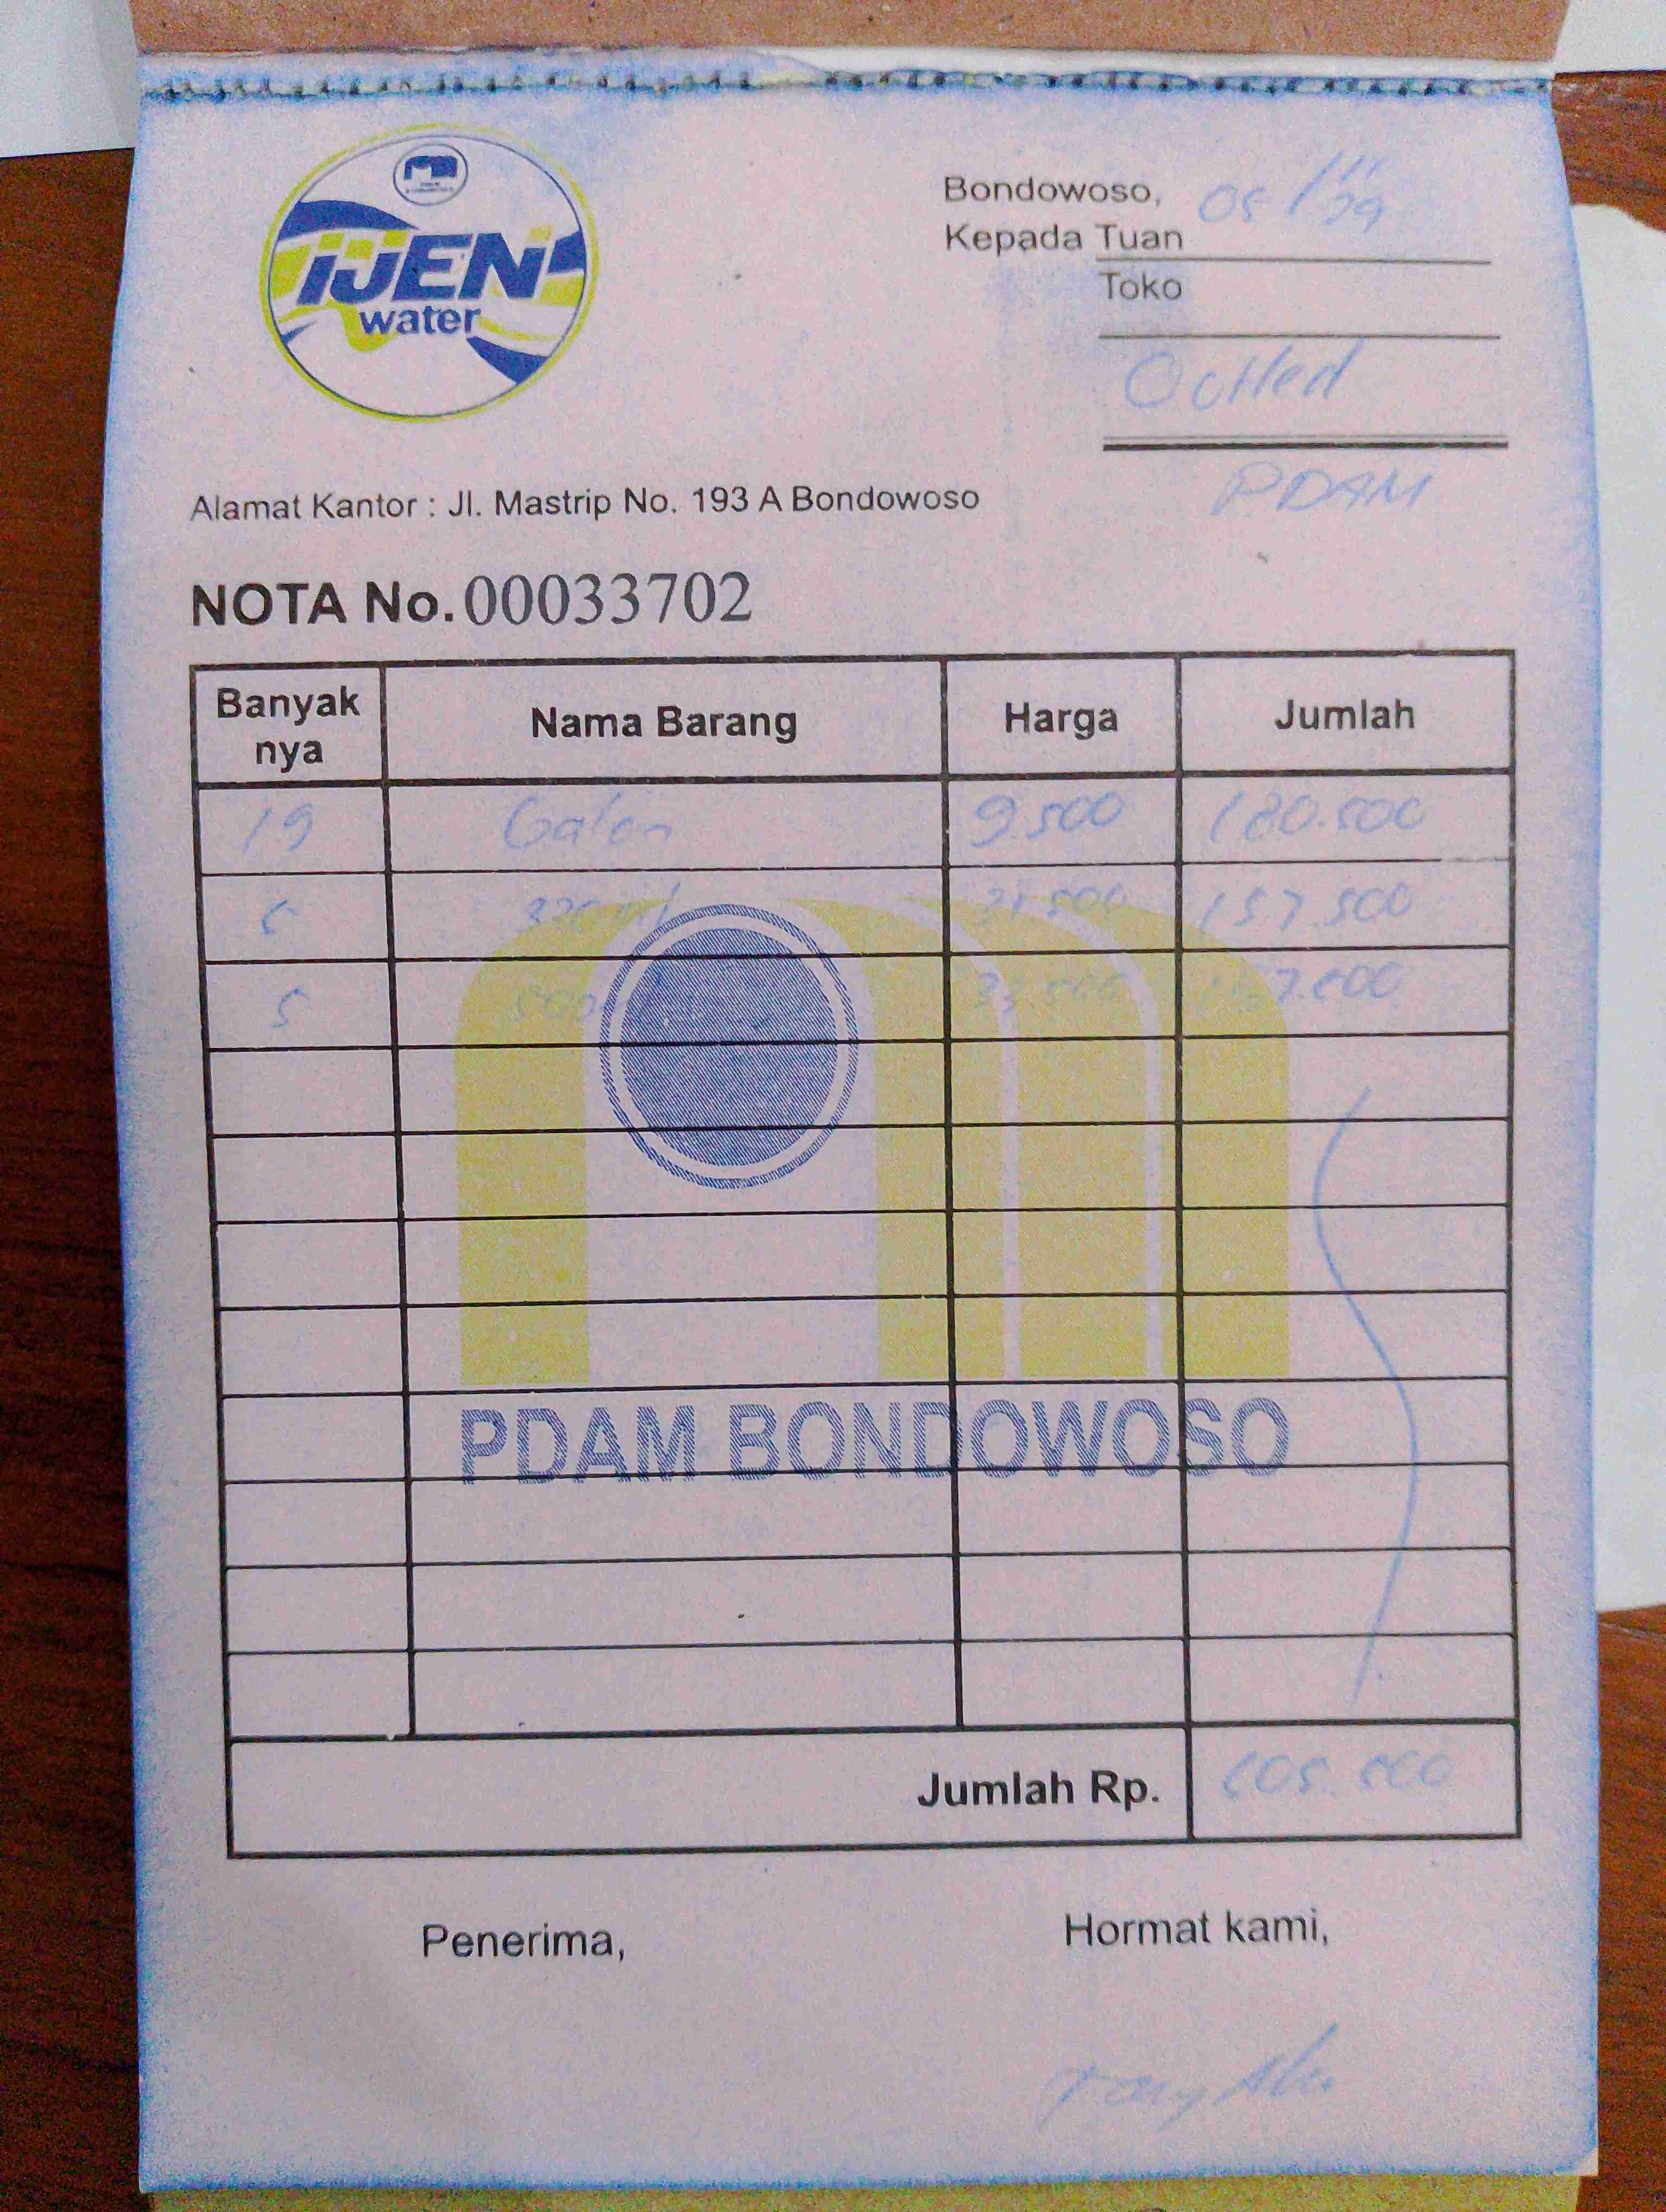 iJEN
water
Bondowoso, 05/11
Kepada Tuan
Toko
PDAM
Alamat Kantor : Jl. Mastrip No. 193 A Bondowoso
NOTA No. 00033702
Banyak nya Nama Barang Harga Jumlah
19 Galon 9.500 180.500
5 31.500 157.500
5 500 33.500
PDAM BONDOWOSO
Jumlah Rp. 505.500
Penerima, Hormat kami,